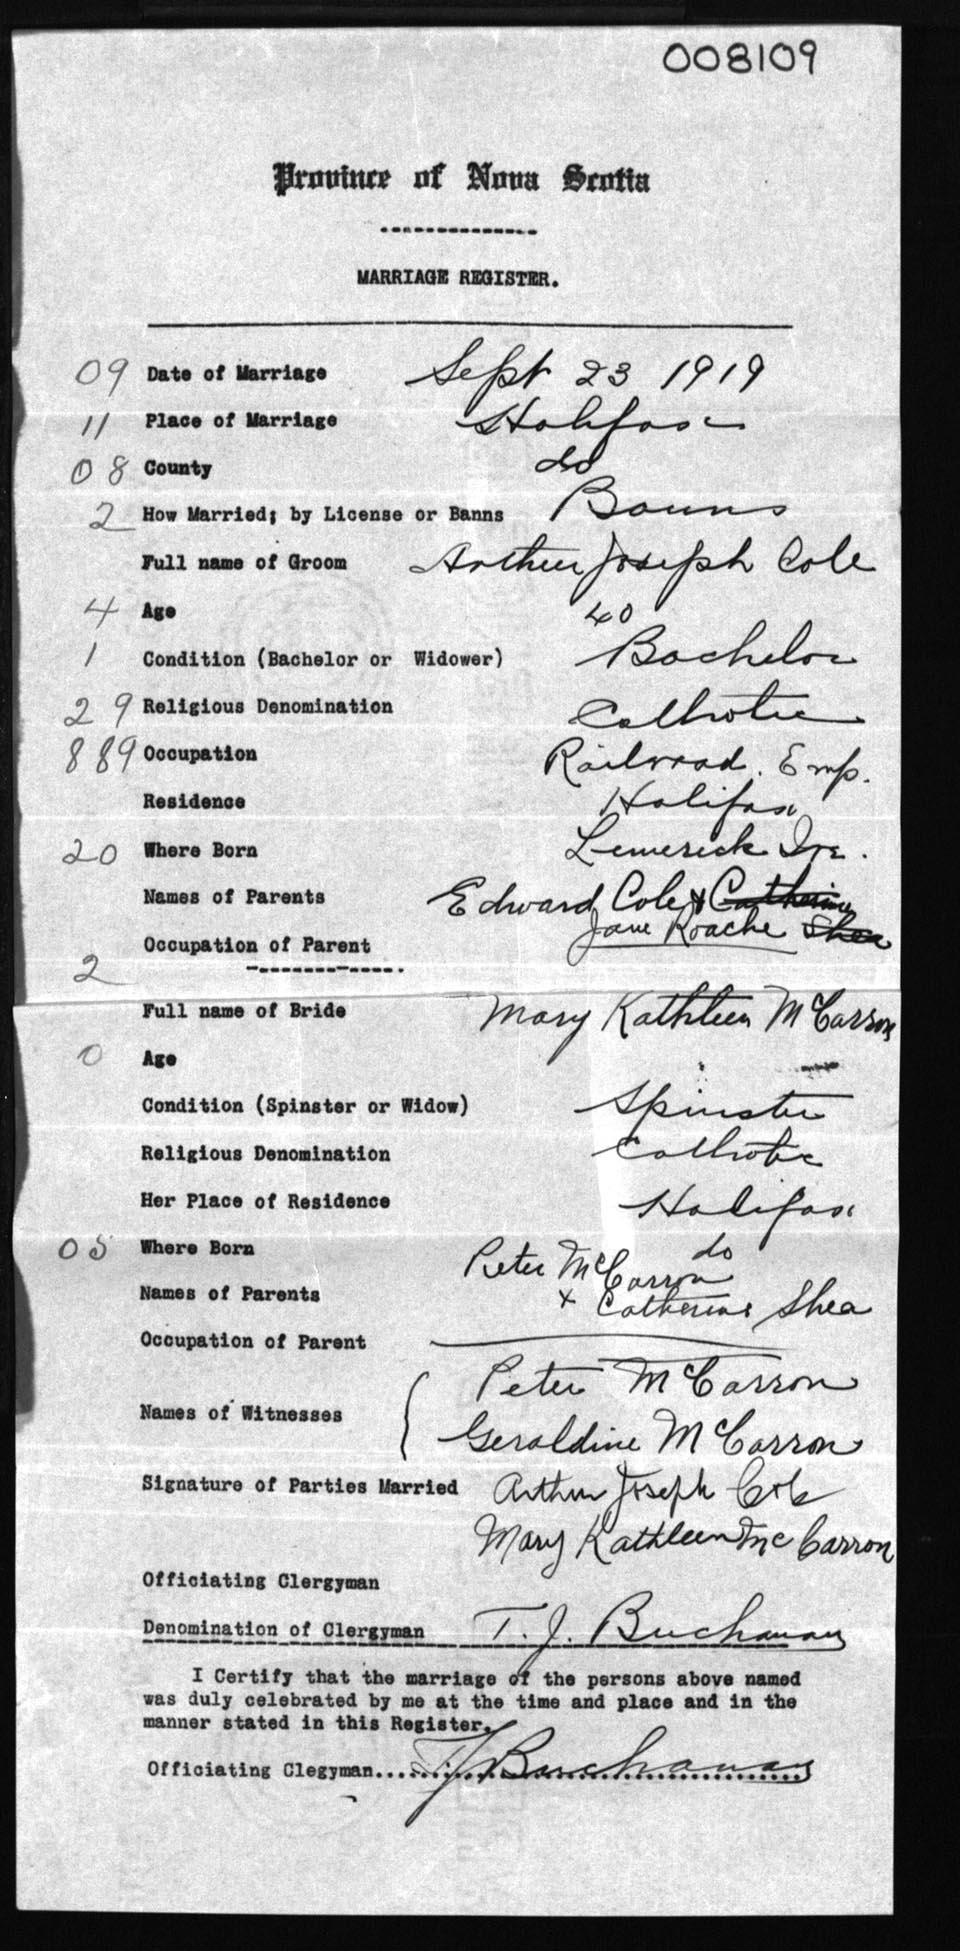 008109
Province of Nova Scotia
MARRIAGE REGISTER.
09 Date of Marriage Sept 23 1919
11 Place of Marriage Halifax
08 County do
2 How Married; by License or Banns Banns
Full name of Groom Arthur Joseph Cole
4 Age 40
1 Condition (Bachelor or Widower) Bachelor
29 Religious Denomination Catholic
889 Occupation Railroad. Emp.
Residence Halifax
20 Where Born Lemerick Ire.
Names of Parents Edward Cole & Catherine
Jane Roache Shea
Occupation of Parent
2
Full name of Bride Mary Kathleen McCarron
0 Age
Condition (Spinster or Widow) Spinster
Religious Denomination Catholic
Her Place of Residence Halifax
05 Where Born do
Names of Parents Peter McCarron
x Catherine Shea
Occupation of Parent
Peter McCarron
Names of Witnesses
Geraldine McCarron
Signature of Parties Married Arthur Joseph Cole
Mary Kathleen McCarron
Officiating Clergyman
Denomination of Clergyman T. J. Buchanan
I Certify that the marriage of the persons above named
was duly celebrated by me at the time and place and in the
manner stated in this Register.
Officiating Clegyman.... TJ Buchanan